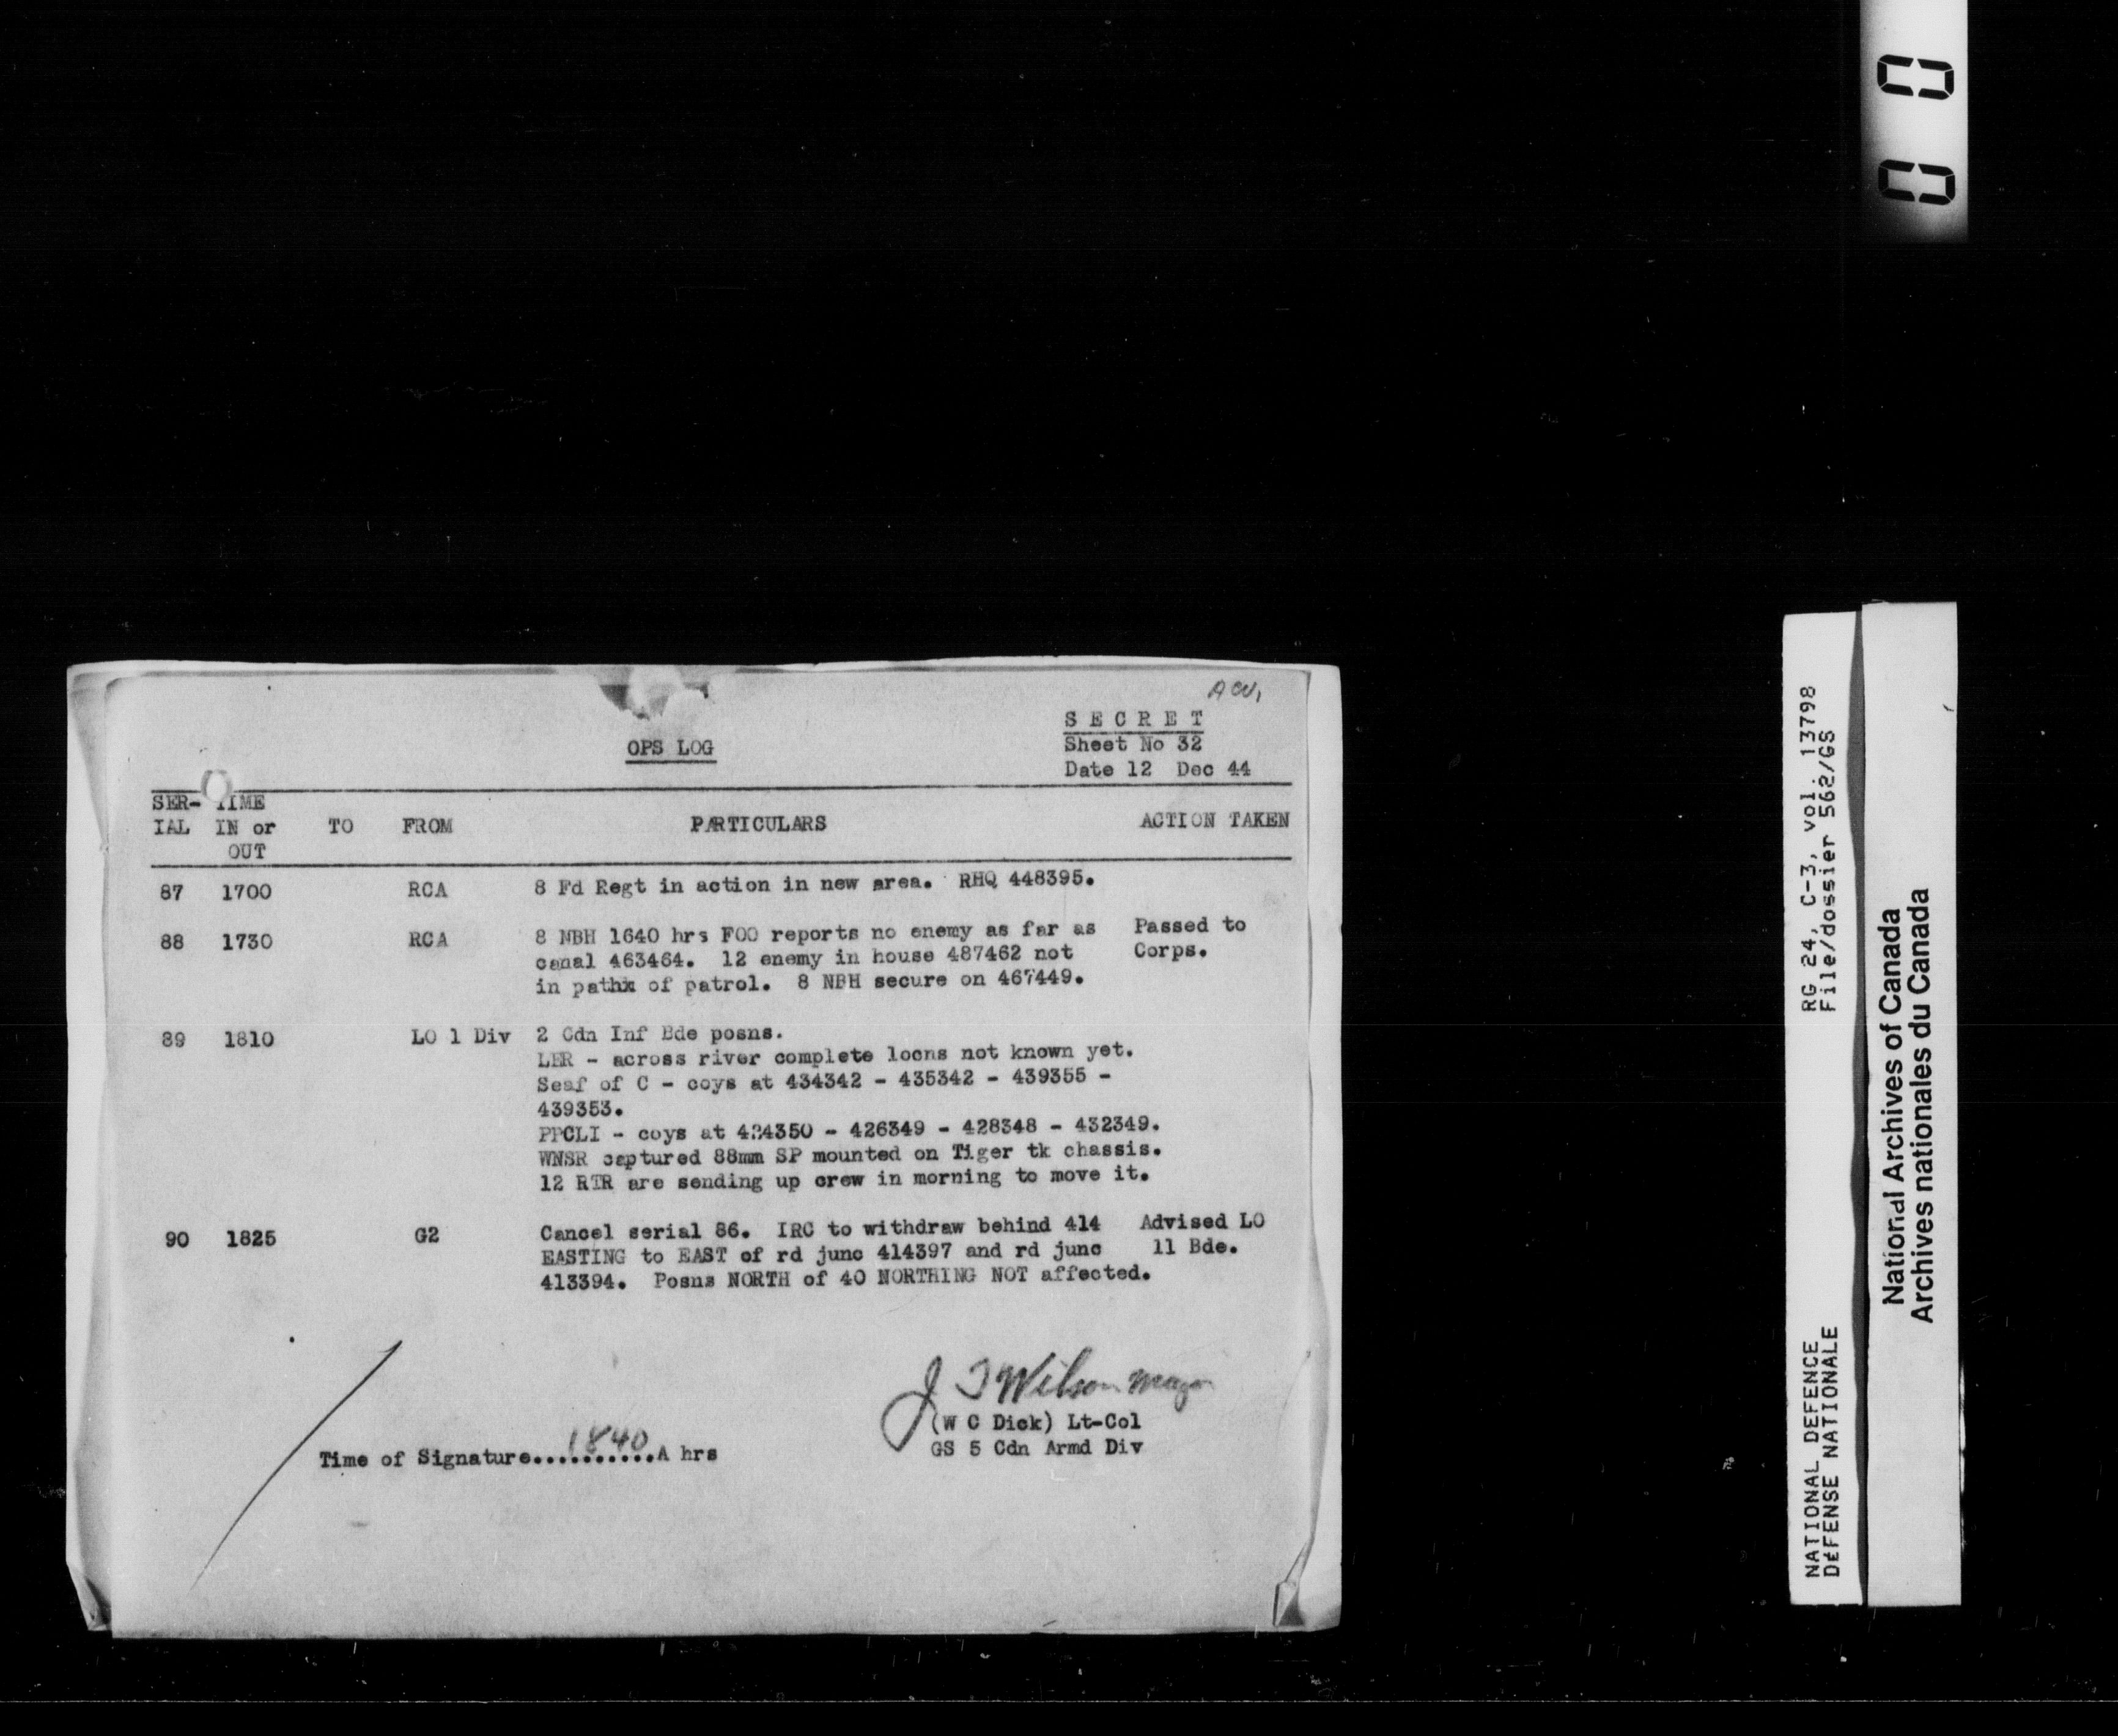 0 0
SECRET
OPS LOG
Sheet No 32
Date 12 Dec 44
SER- TIME
IAL IN or TO FROM PARTICULARS ACTION TAKEN
OUT
87 1700 RCA 8 Fd Regt in action in new area. RHQ 448395.
88 1730 RCA 8 NBH 1640 hrs FOO reports no enemy as far as Passed to
canal 463464. 12 enemy in house 487462 not Corps.
in pathx of patrol. 8 NBH secure on 467449.
89 1810 LO 1 Div 2 Cdn Inf Bde posns.
LER - across river complete locns not known yet.
Seaf of C - coys at 434342 - 435342 - 439355 -
439353.
PPCLI - coys at 424350 - 426349 - 428348 - 432349.
WNSR captured 88mm SP mounted on Tiger tk chassis.
12 RTR are sending up crew in morning to move it.
90 1825 G2 Cancel serial 86. IRC to withdraw behind 414 Advised LO
EASTING to EAST of rd junc 414397 and rd junc 11 Bde.
413394. Posns NORTH of 40 NORTHING NOT affected.
J T Wilson Major
(W C Dick) Lt-Col
GS 5 Cdn Armd Div
Time of Signature...1840...A hrs
RG 24, C-3, vol. 13798
File/dossier 562/GS
NATIONAL DEFENCE
DÉFENSE NATIONALE
National Archives of Canada
Archives nationales du Canada